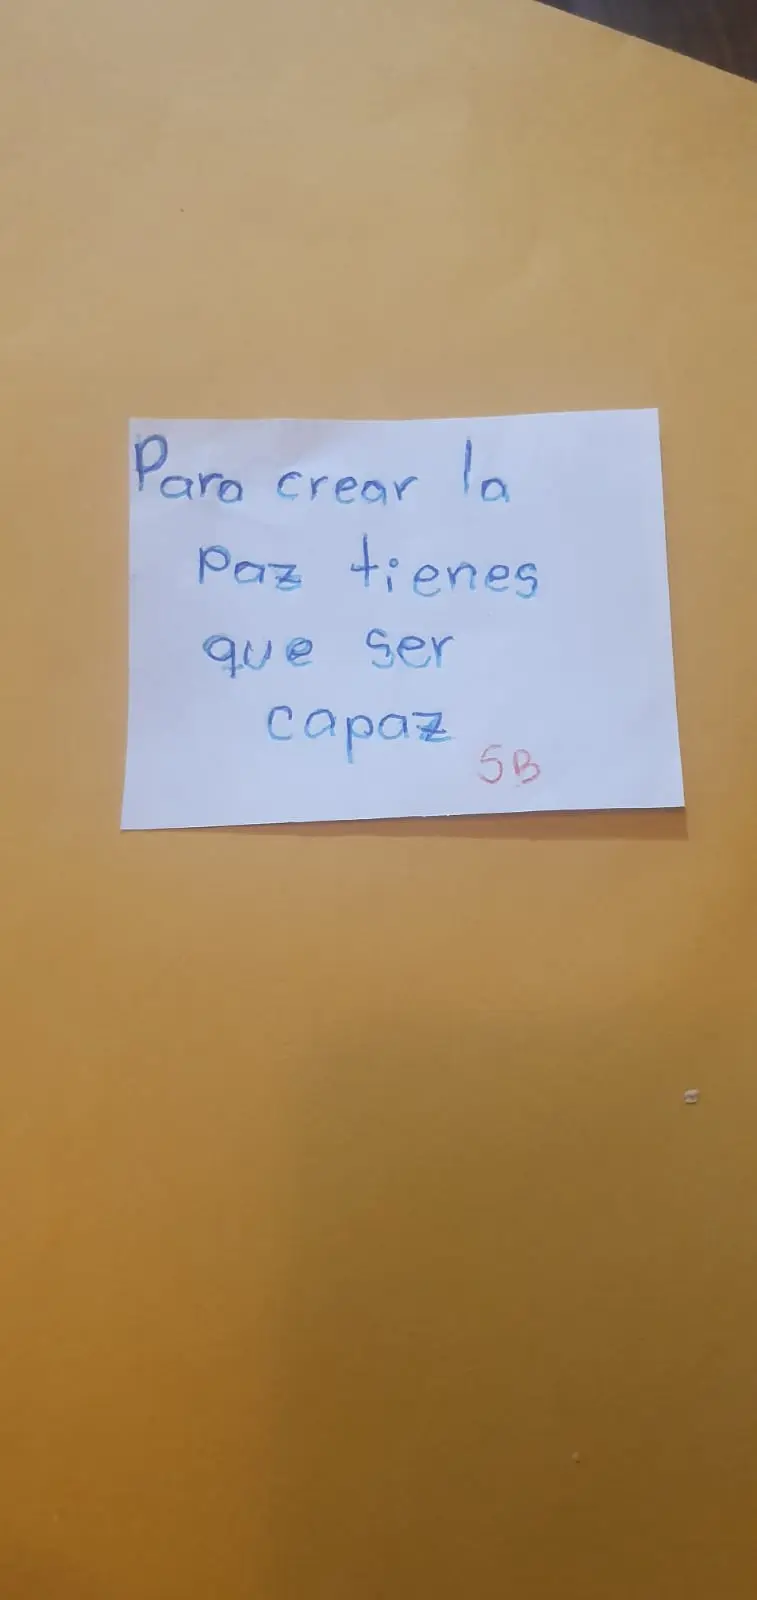 Para crear la
paz tienes
que ser
capaz
5B